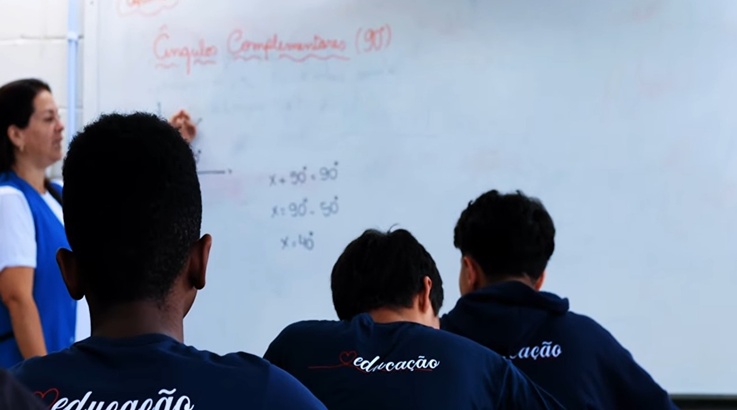 Ângulos Complementares (90°)
x + 50° = 90°
x = 90° - 50°
x = 40°
educação
educação
educação